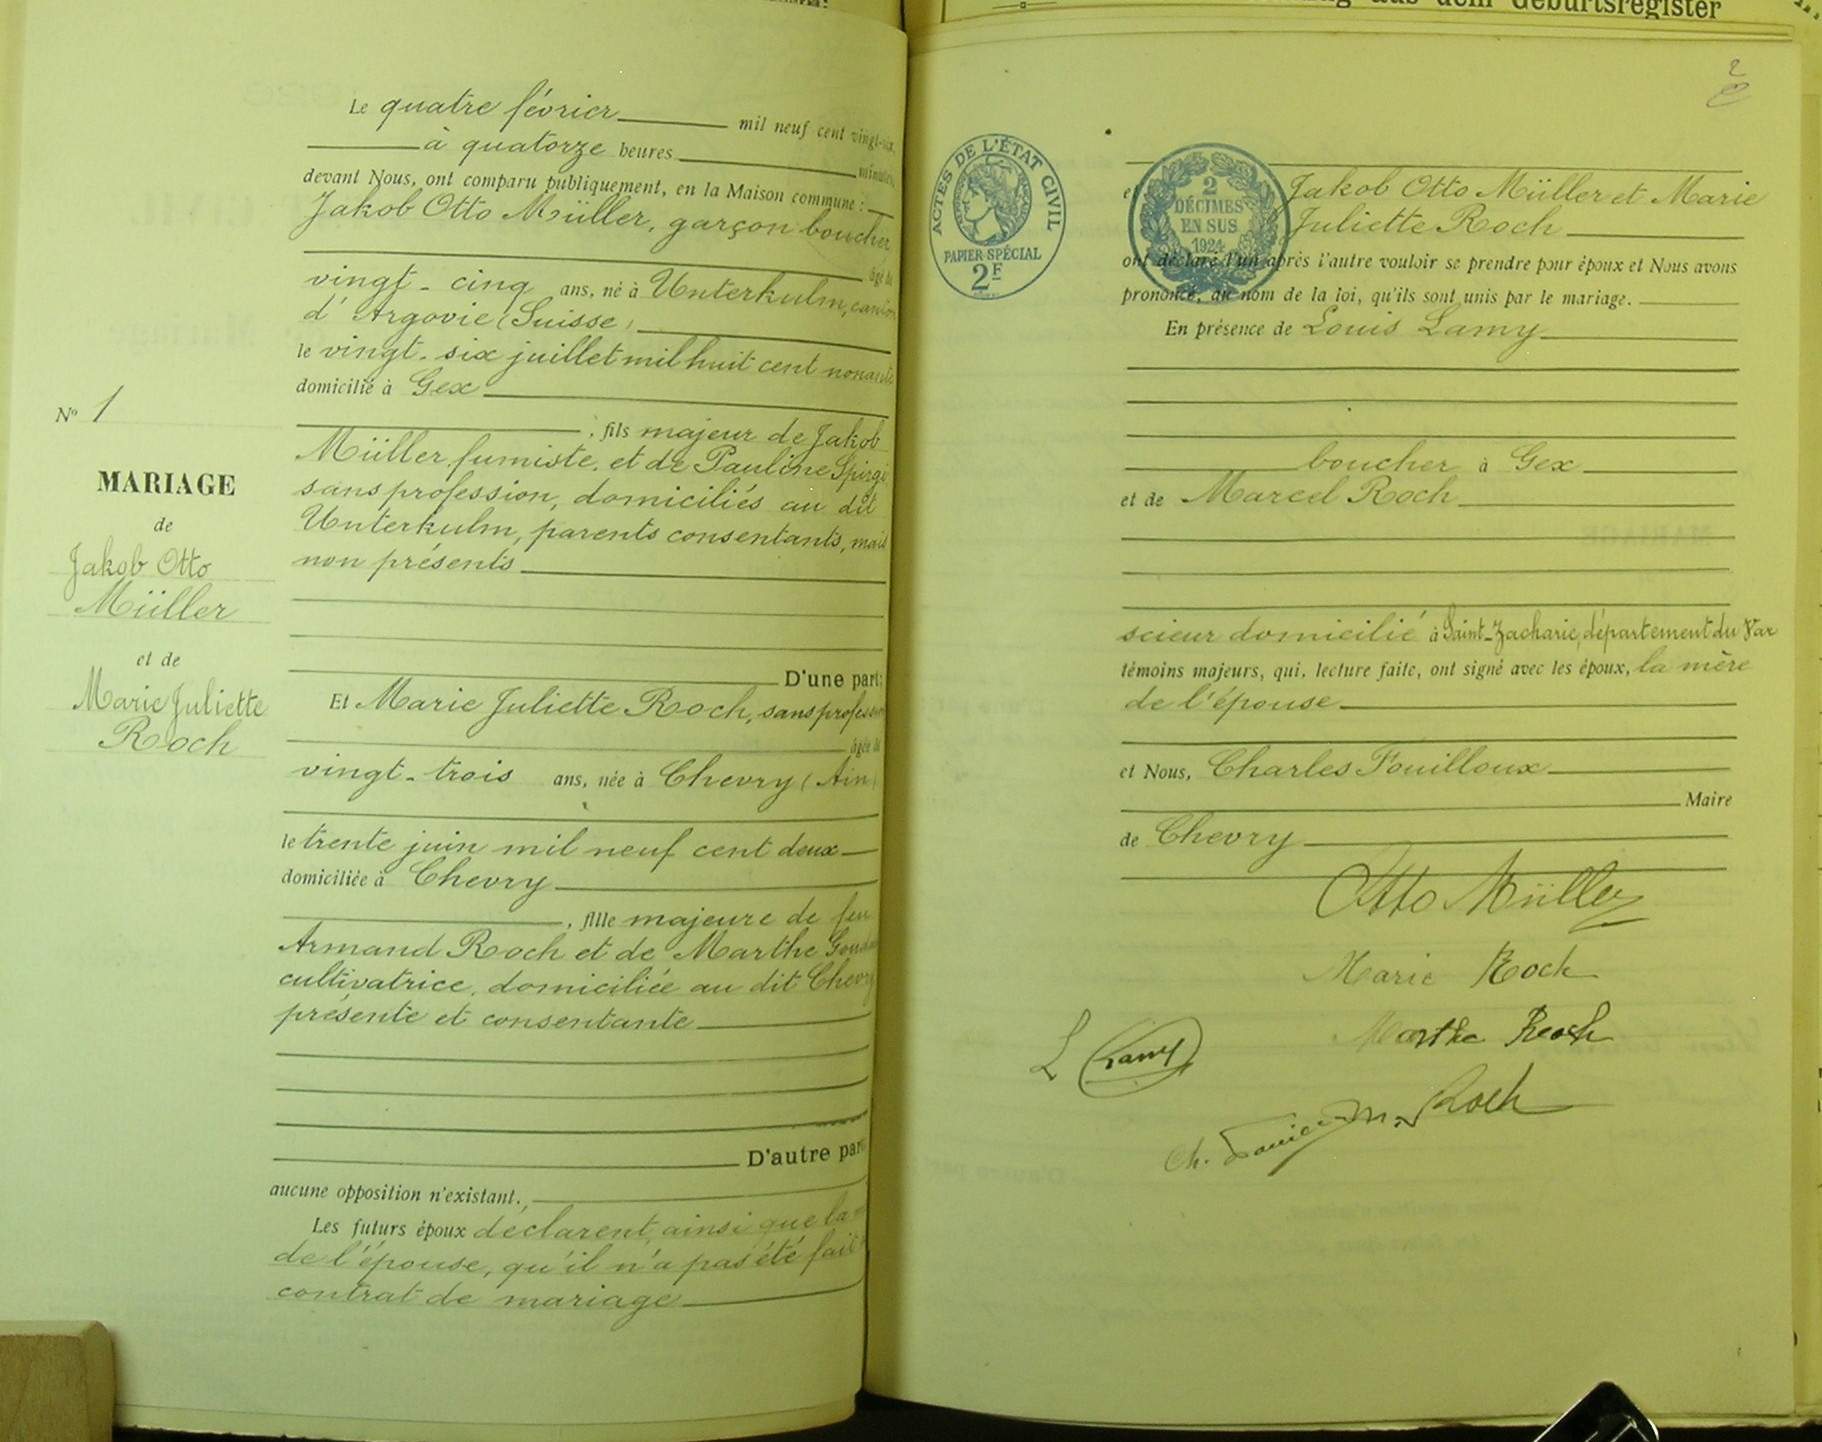 aus dem Geburtsregister
Le quatre février mil neuf cent vingt-six,
à quatorze heures minutes
devant Nous, ont comparu publiquement, en la Maison commune :
Jakob Otto Müller, garçon boucher
âgé de
vingt-cinq ans, né à Unterkulm, canton
d'Argovie (Suisse)
le vingt-six juillet mil huit cent nonante
domicilié à Gex
, fils majeur de Jakob
Müller, fumiste, et de Pauline Spirgi
sans profession, domiciliés au dit
Unterkulm, parents consentants, mais
non présents
D'une part;
Et Marie Juliette Roch, sans profession
âgée de
vingt-trois ans, née à Chevry (Ain)
le trente juin mil neuf cent deux
domiciliée à Chevry
, fille majeure de feu
Armand Roch et de Marthe
cultivatrice, domiciliée au dit Chevry
présente et consentante
D'autre part
aucune opposition n'existant.
Les futurs époux déclarent, ainsi que la
de l'épouse, qu'il n'a pas été fait
contrat de mariage
N° 1
MARIAGE
de
Jakob Otto
Müller
et de
Marie Juliette
Roch
2
ACTES DE L'ÉTAT CIVIL
PAPIER SPÉCIAL
2F
2
DÉCIMES
EN SUS
1924
et Jakob Otto Müller et Marie
Juliette Roch
ont déclaré l'un après l'autre vouloir se prendre pour époux et Nous avons
prononcé, au nom de la loi, qu'ils sont unis par le mariage.
En présence de Louis Lamy
boucher à Gex
et de Marcel Roch
scieur domicilié à Saint-Zacharie, département du Var
témoins majeurs, qui, lecture faite, ont signé avec les époux, la mère
de l'épouse
et Nous, Charles Fouilloux
Maire
de Chevry
Otto Müller
Marie Roch
Marthe Roch
L Lamy
M. Roch
Ch.